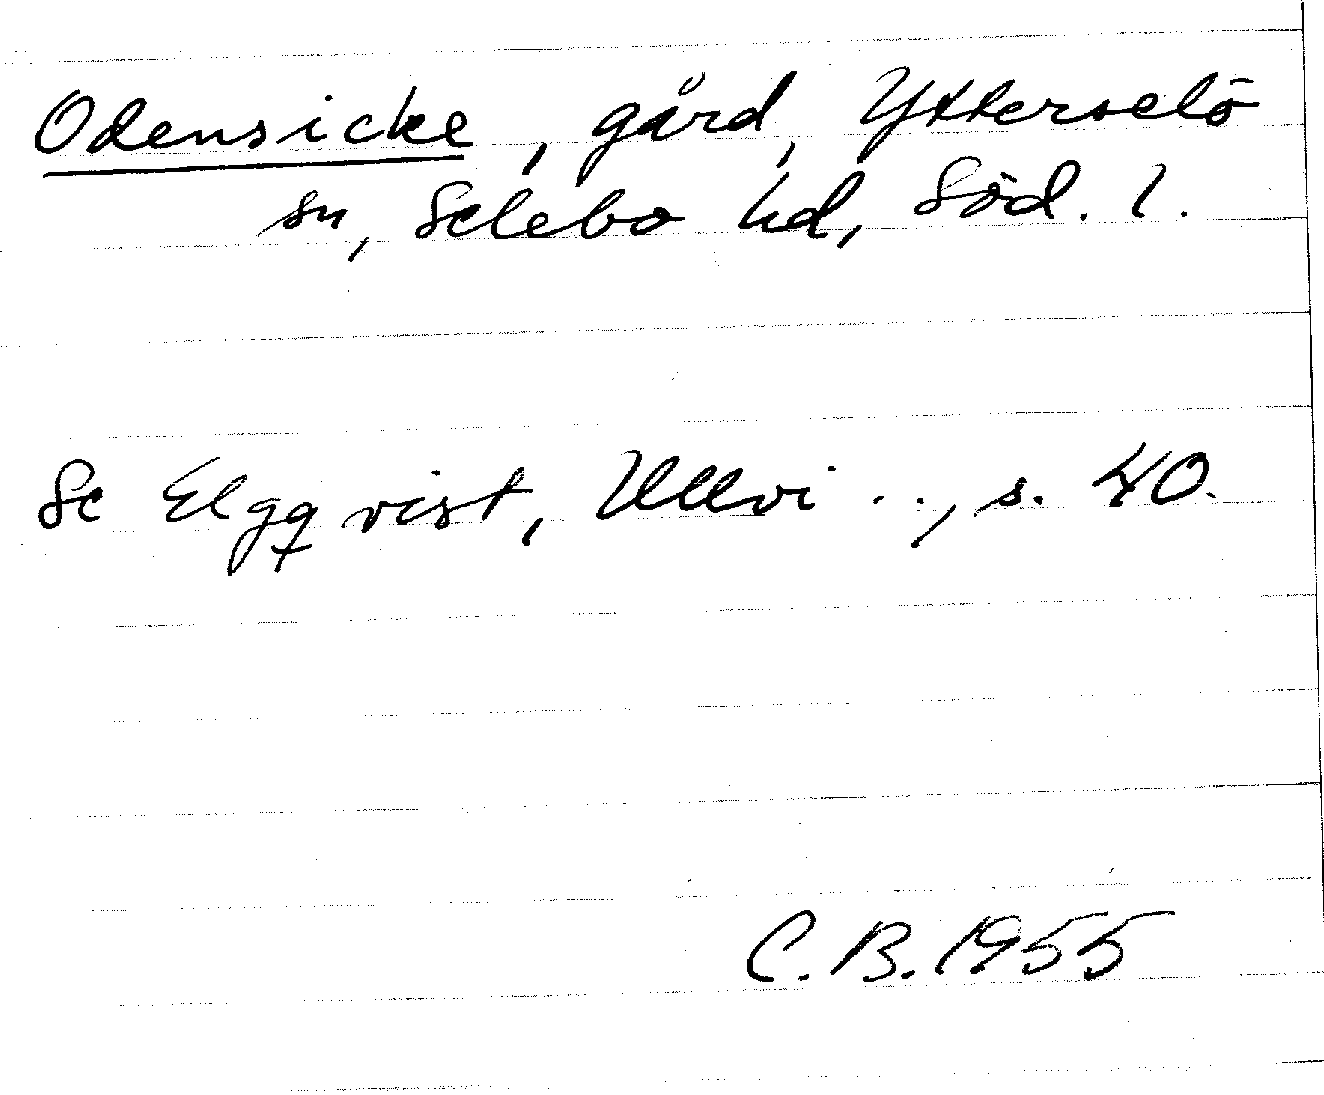 Odensicke, gård, Ytterselö
sn, Selebo hd, Söd. l.
Se Elgqvist, Ullvi . . , s. 40.
C. B. 1955